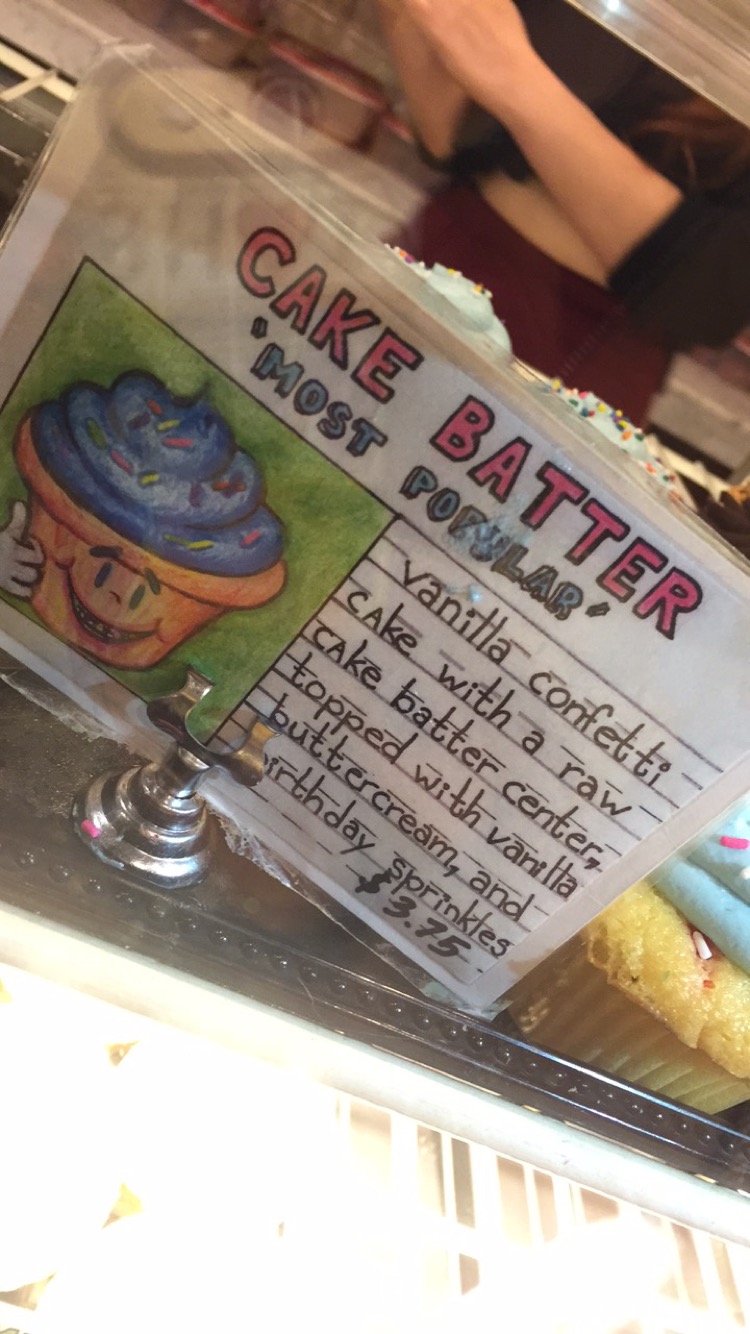 CAKE BATTER
"MOST POPULAR"
vanilla confetti
cake with a raw
cake batter center,
topped with vanilla
buttercream, and
birthday sprinkles
$3.75